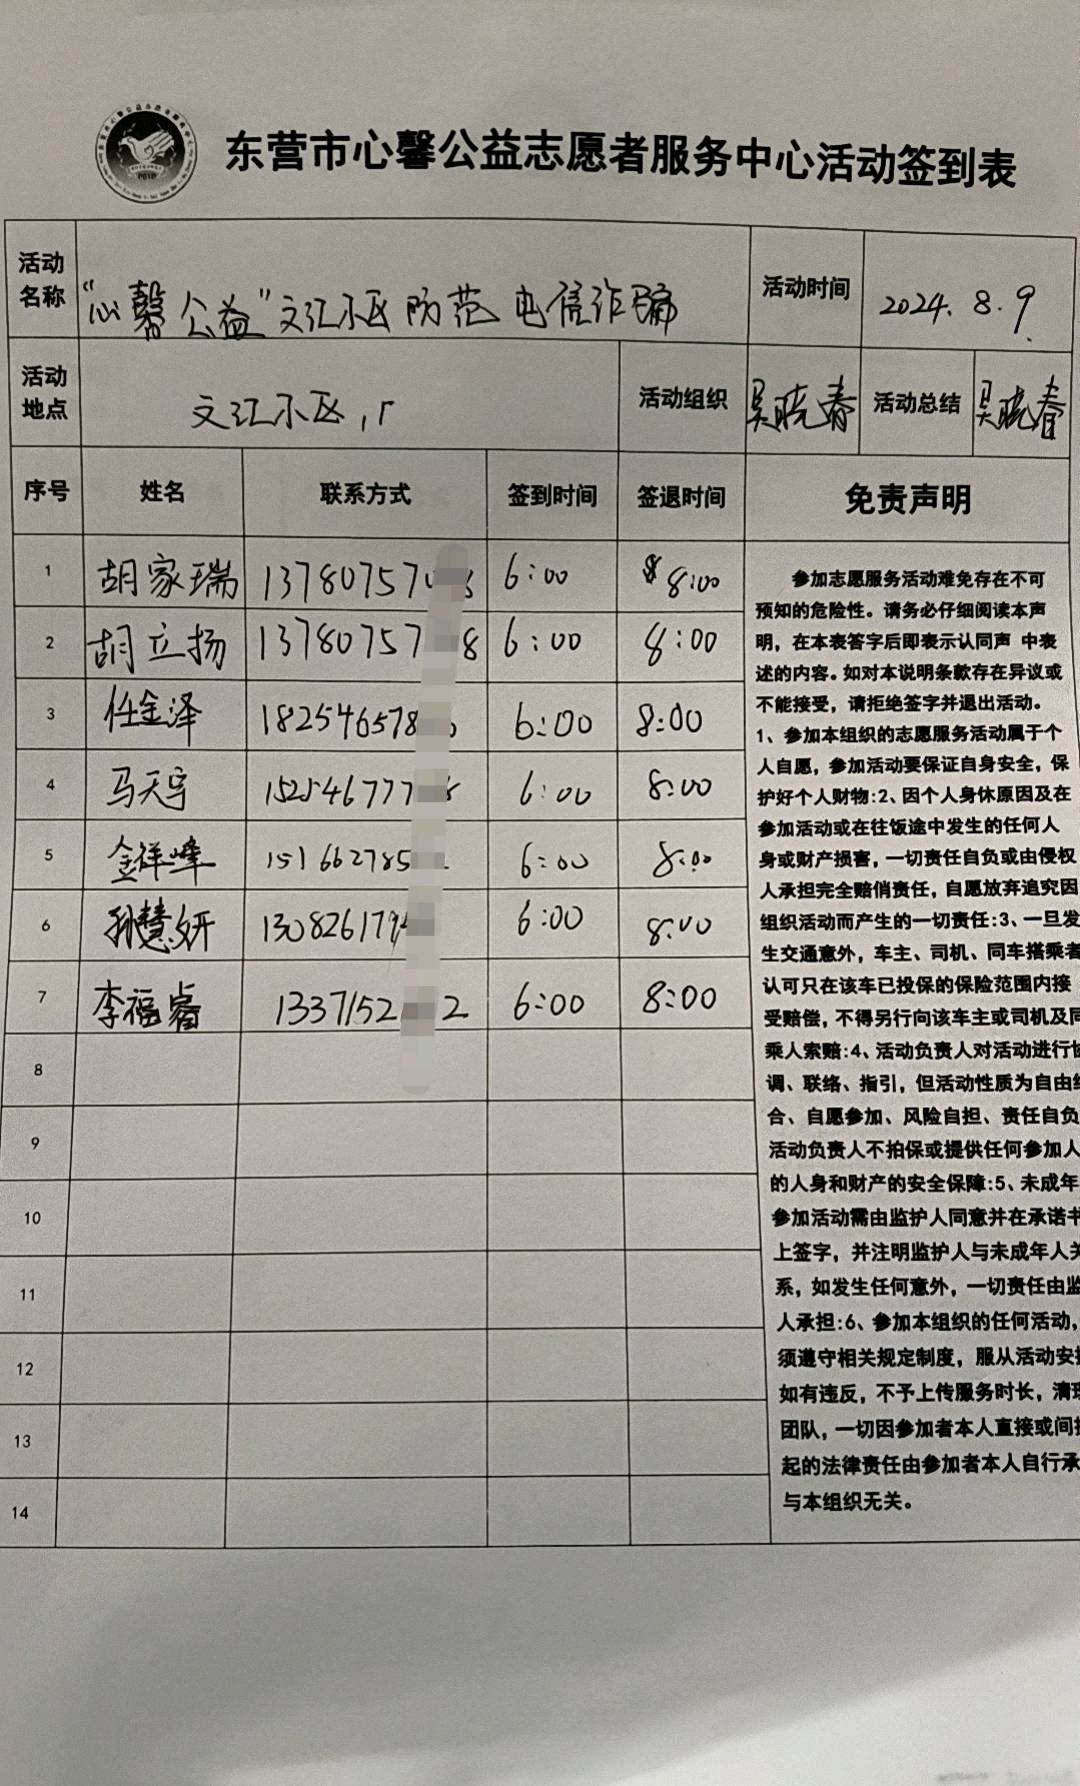 东营市心馨公益志愿者服务中心活动签到表
活动名称 “心馨公益”文汇小区防范电信诈骗 活动时间 2024.8.9.
活动地点 文汇小区, 活动组织 吴晓春 活动总结 吴晓春
序号 姓名 联系方式 签到时间 签退时间 免责声明
1 胡家瑞 13780757 6:00 8:00
2 胡立扬 13780757 8 6:00 8:00
3 任金泽 182546578 6:00 8:00
4 马天宇 152546777 6:00 8:00
5 金祥峰 151662785 6:00 8:00
6 孙慧妍 130826179 6:00 8:00
7 李福睿 1337152 2 6:00 8:00
8
9
10
11
12
13
14
参加志愿服务活动难免存在不可
预知的危险性。请务必仔细阅读本声
明，在本表答字后即表示认同声 中表
述的内容。如对本说明条款存在异议或
不能接受，请拒绝签字并退出活动。
1、参加本组织的志愿服务活动属于个
人自愿，参加活动要保证自身安全，保
护好个人财物:2、因个人身休原因及在
参加活动或在往饭途中发生的任何人
身或财产损害，一切责任自负或由侵权
人承担完全赔俏责任，自愿放弃追究因
组织活动而产生的一切责任:3、一旦发
生交通意外，车主、司机、同车搭乘者
认可只在该车已投保的保险范围内接
受赔偿，不得另行向该车主或司机及同
乘人索赔:4、活动负责人对活动进行协
调、联络、指引，但活动性质为自由组
合、自愿参加、风险自担、责任自负
活动负责人不拍保或提供任何参加人
的人身和财产的安全保障:5、未成年
参加活动需由监护人同意并在承诺书
上签字，并注明监护人与未成年人关
系，如发生任何意外，一切责任由监
人承担:6、参加本组织的任何活动，
须遵守相关规定制度，服从活动安排
如有违反，不予上传服务时长，清理
团队，一切因参加者本人直接或间接
起的法律责任由参加者本人自行承
与本组织无关。